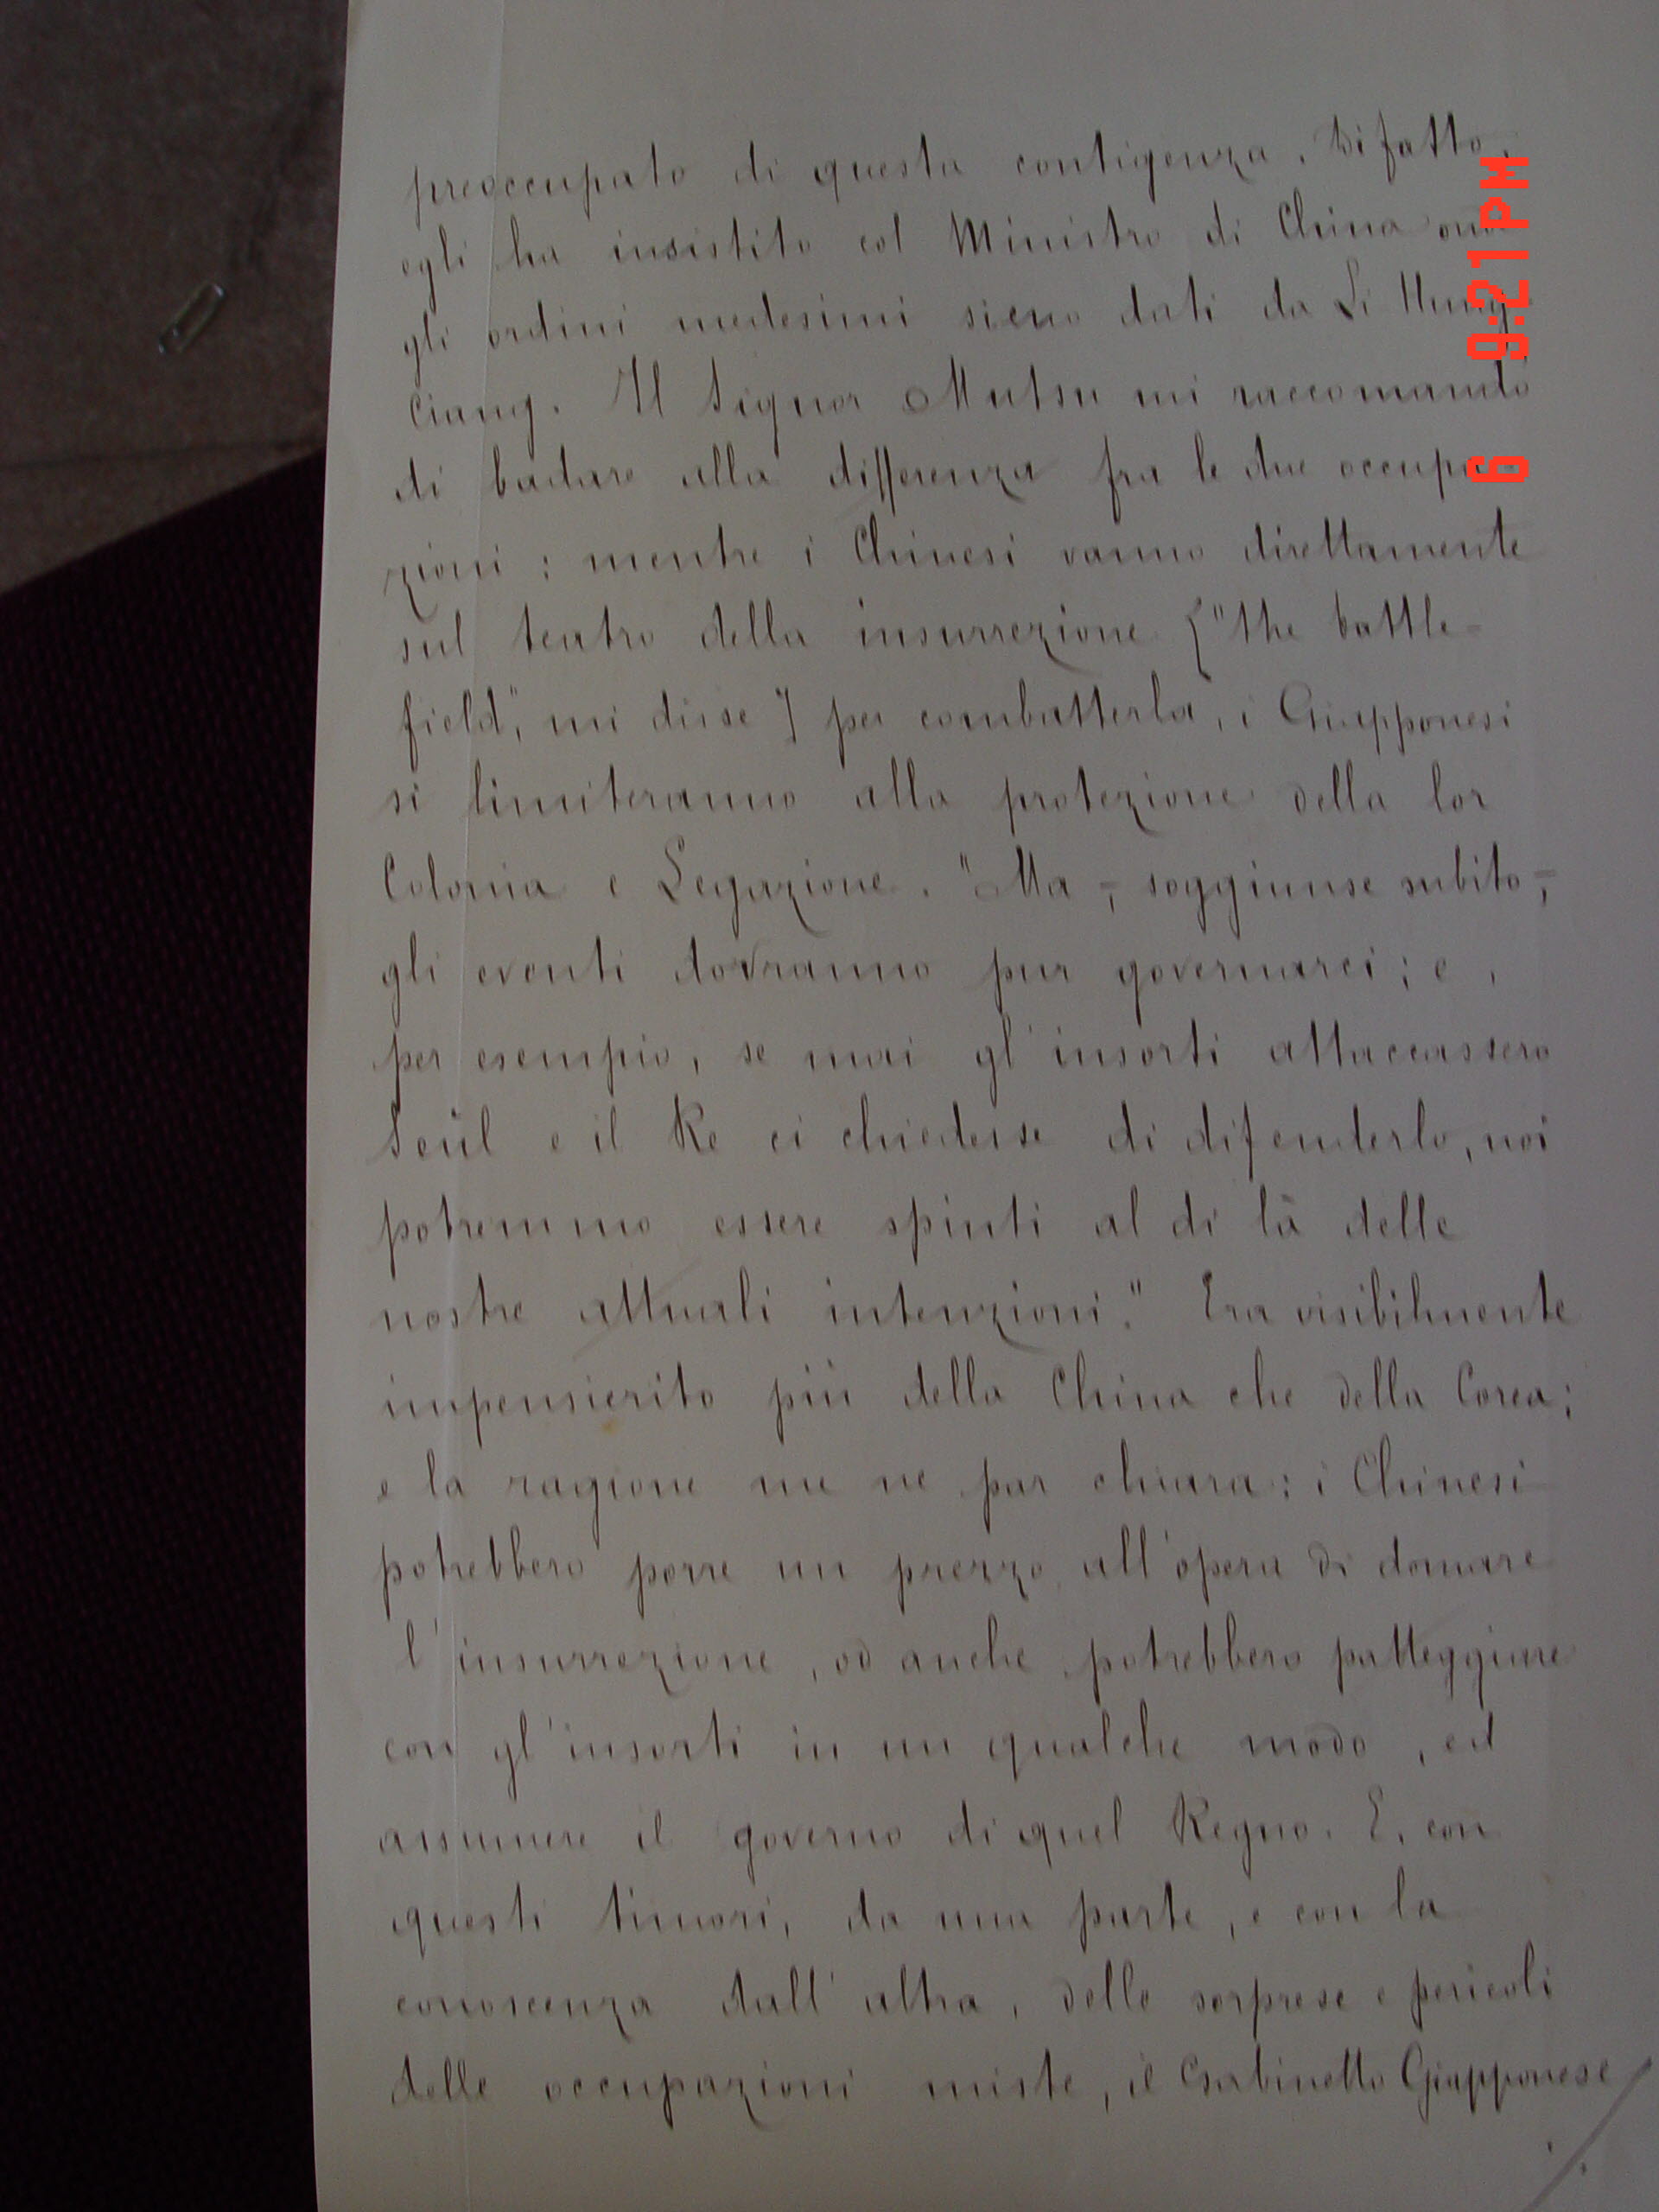 preoccupato di questa contigenza. Difatto,
egli ha insistito col Ministro di China
gli ordini medesimi sieno dati da Li Hung-
Ciang. Il Signor Mutsu mi raccomandò
di badare alla differenza fra le due occupa
zioni: mentre i Chinesi vanno direttamente
sul teatro della insurrezione ["the battle-
field", mi disse] per combatterla, i Giapponesi
si limiteranno alla protezione della lor
Colonia e Legazione. "Ma -, soggiunse subito -,
gli eventi dovranno pur governarci; e,
per esempio, se mai gl'insorti attaccassero
Seül e il Re ci chiedesse di difenderlo, noi
potremmo essere spinti al di là delle
nostre attuali intenzioni." Era visibilmente
impensierito più della China che della Corea;
e la ragione me ne par chiara: i Chinesi
potrebbero porre un prezzo all'opera di domare
l'insurrezione, od anche potrebbero patteggiare
con gl'insorti in un qualche modo, ed
assumere il governo di quel Regno. E, con
questi timori, da una parte, e con la
conoscenza dall'altra, delle sorprese e pericoli
delle occupazioni miste, il Gabinetto Giapponese
6 9:21PM